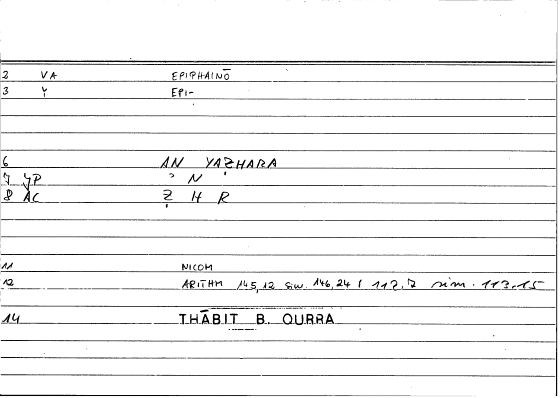 2 VA EPIPHAINŌ
3 Y EPI-
6 AN YAẒHARA
7 YP ʾ N
8 AC Ẓ H R
11 NICOM
12 ARITHM 145,12 sim. 146,24 / 112,7 sim. 113,15
14 THĀBIT B. QURRA